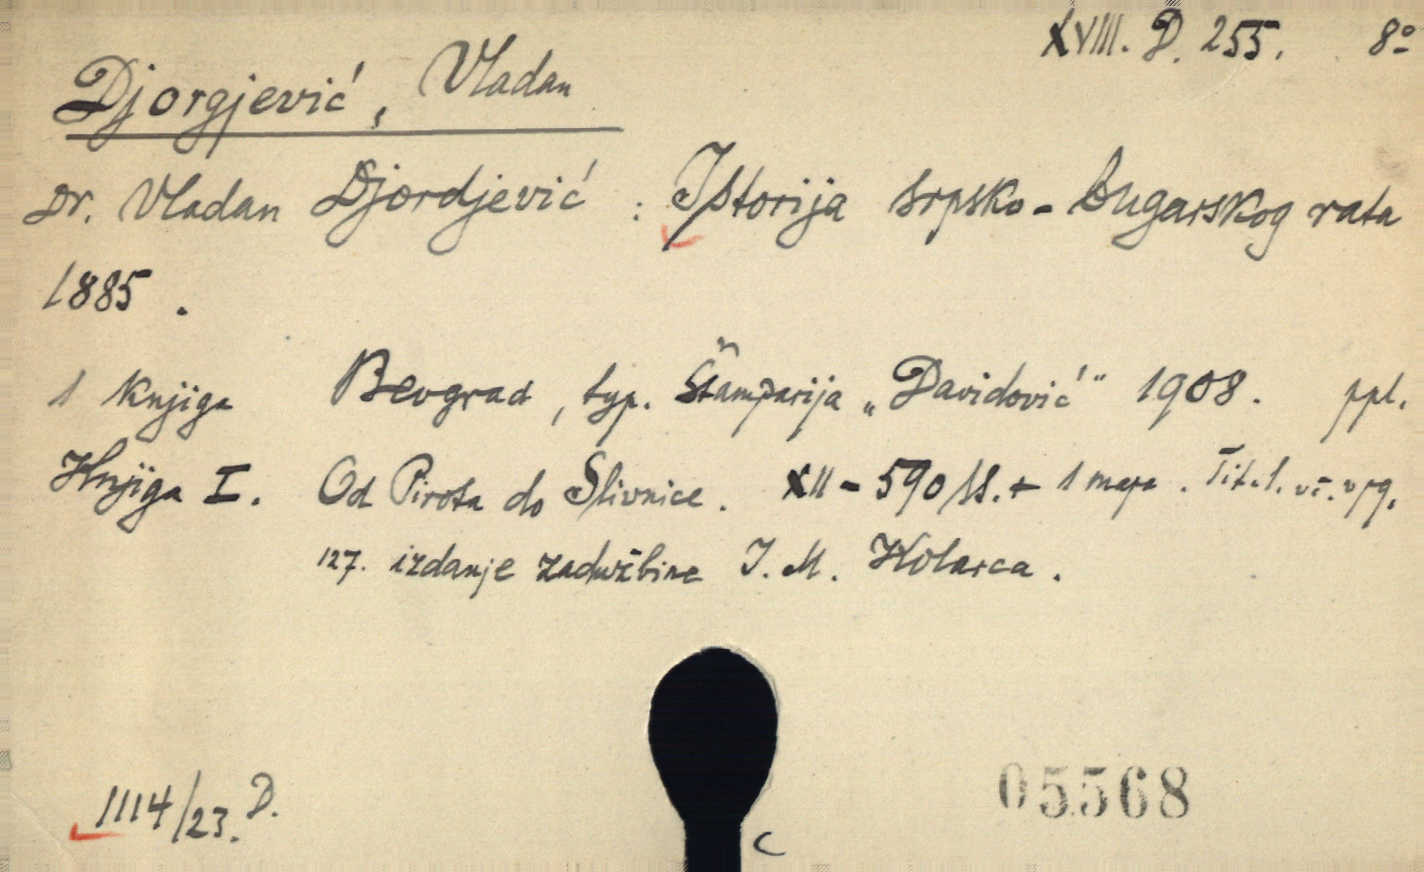 XVIII. D. 255. 8º
Djorgjević, Vladan
Dr. Vladan Djordjević : Istorija srpsko-bugarskog rata
1885.
1 knjiga Beograd, typ. Štamparija „Davidović" 1908. ppl.
Knjiga I. Od Pirota do Slivnice. XII - 590 ss. + 1 mapa.
127. izdanje zadužbine I. M. Kolarca.
1114/23. D.
05568